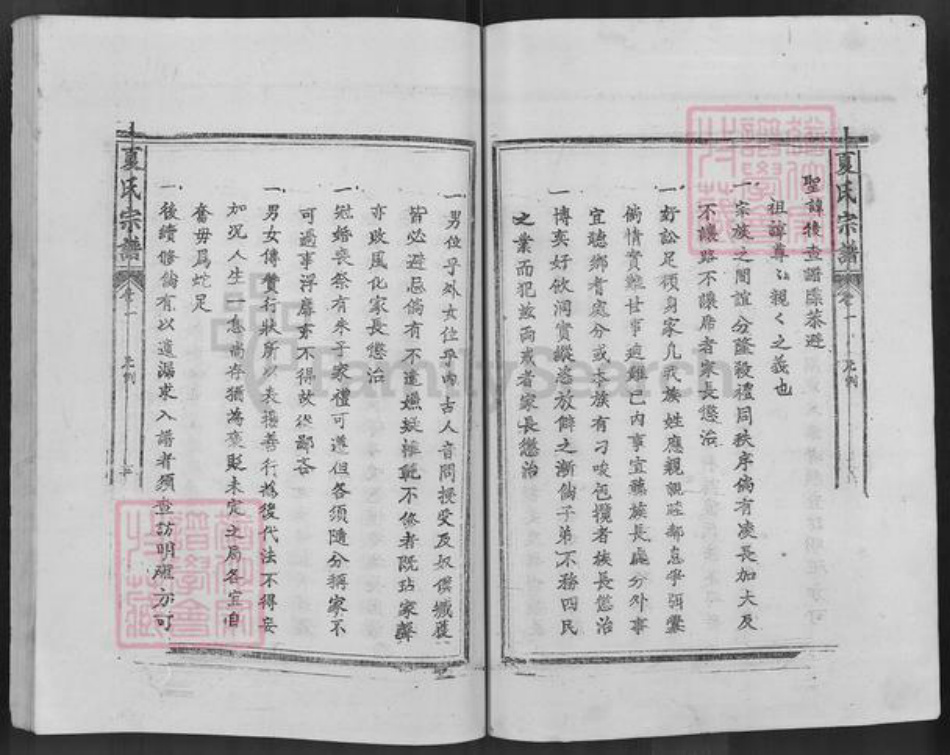 夏氏宗譜
卷一
凡例
聖諱後查譜牒恭避
祖諱尊尊親親之義也
一宗族之間誼分隆殺禮同秩序倘有凌長加大及
不讓路不讓席者家長懲治
一好訟足傾身家凡我族姓應親親睦鄰息爭弭釁
倘情實難甘事適難已內事宜聽族長處分外事
宜聽鄉者處分或本族有刁唆包攬者族長懲治
一博奕好飲洞實縱恣放僻之漸倘子弟不務四民
之業而犯茲兩戒者家長懲治
一男位乎外女位乎內古人音問授受及奴僕
皆必避忌倘有不遠嫌疑帷不修者既玷家聲
亦敗風化家長懲治
一冠婚喪祭有朱子家禮可遵但各須隨分稱家不
可過事浮靡亦不得故從鄙吝
一男女傳贊行狀所以表揚善行為後代法不得妄
加況人生一息尚存猶為褒貶未定之局各宜自
奮毋為蛇足
一後續修倘有以遺漏求入譜者須查訪明確方可
夏氏宗譜
卷一
凡例